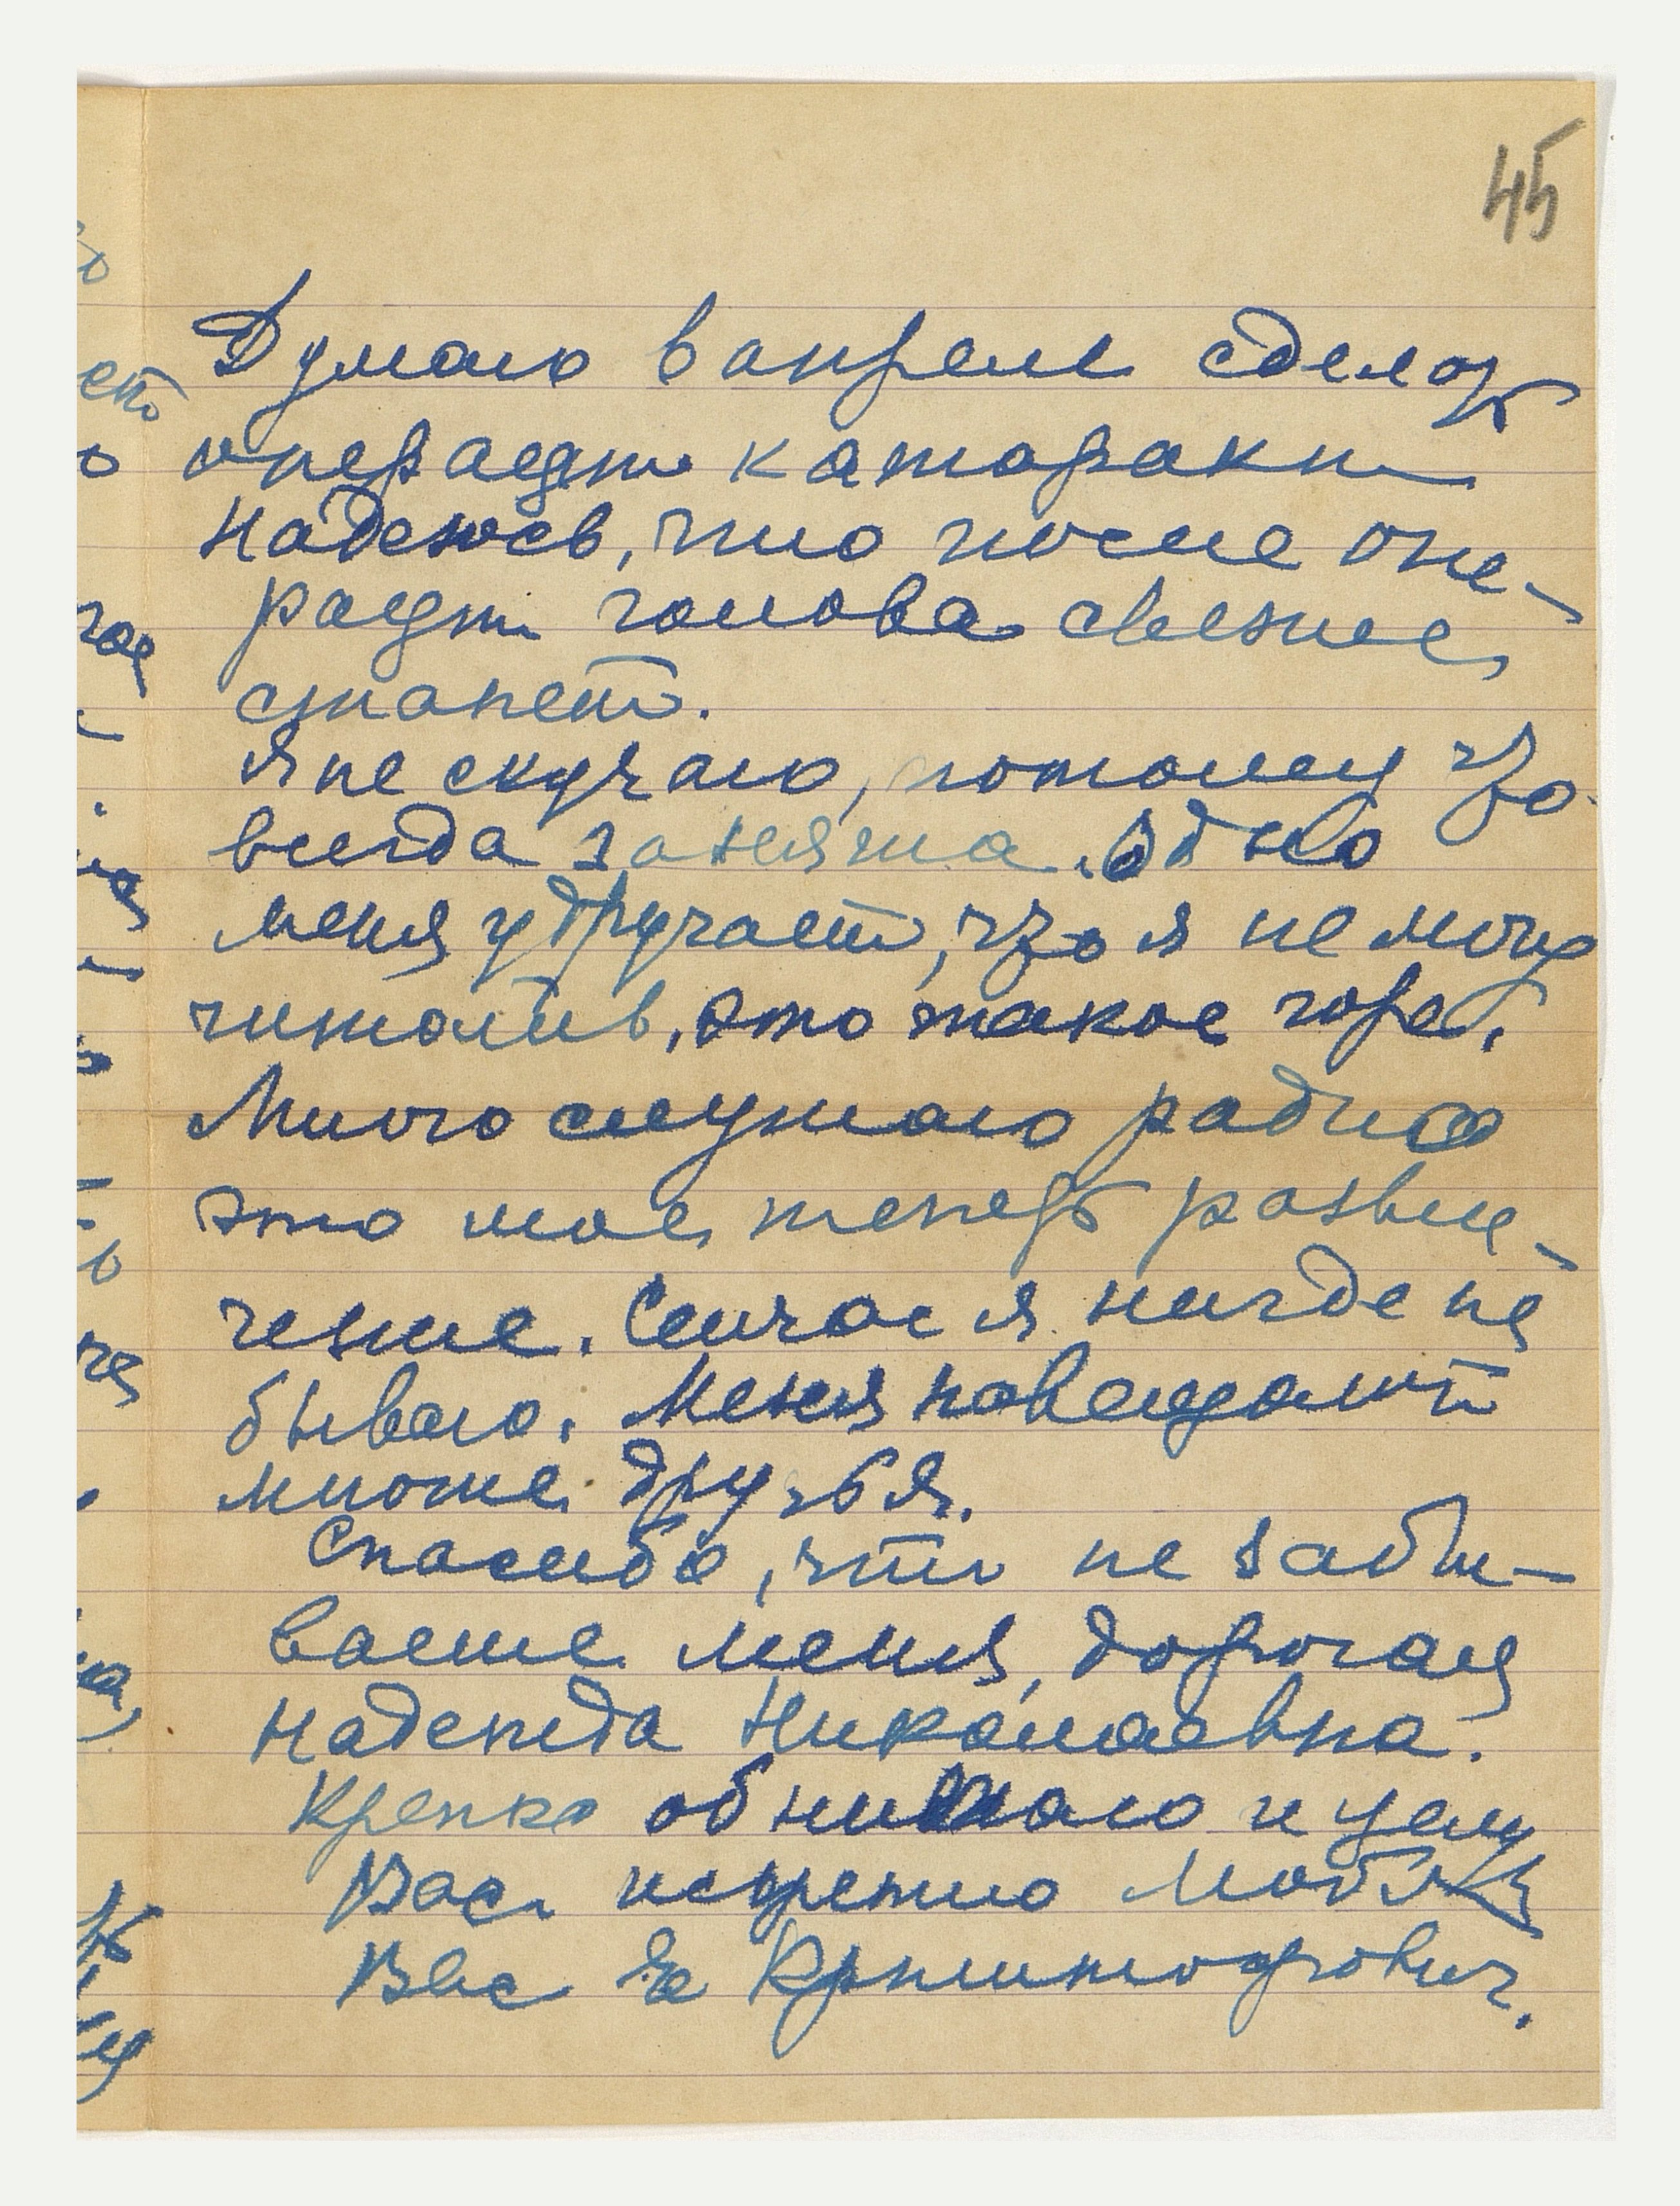 45
Думаю в апреле сделать
операцию катаракты
надеюсь, что после опе-
рации голова свежее
станет.
Я не скучаю, потому что
всегда занята. Одно
меня удручает, что я не могу
читать, это такое горе.
Много слушаю радио
это мое теперь развле-
чение. Сейчас я нигде не
бываю. Меня навещают
многие друзья.
Спасибо, что не забы-
ваете меня, дорогая
Надежда Николаевна.
Крепко обнимаю и целую
Вас. искренно любящая
Вас Е Христофорович.